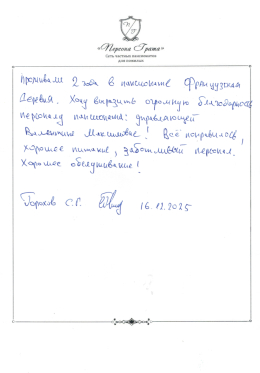 «Персона Грата»
Сеть частных пансионатов
для пожилых
Проживаем 2 года в пансионате Французская
Деревня. Хочу выразить огромную благодарность
персоналу пансионата: управляющей
Валентине Максимовне! Всё понравилось,
хорошее питание, заботливый персонал.
Хорошее обслуживание!
Горохов С.Г. 16.12.2025